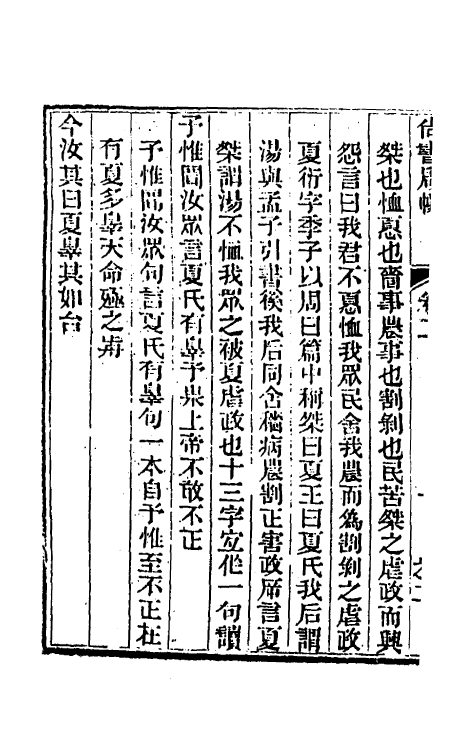 桀也恤惠也嗇事農事也割剝也民苦桀之虐政而興
怨言曰我君不惠恤我眾民舍我農而為割剝之虐政
夏衍字季子以周曰篇中稱桀曰夏王曰夏氏我后謂
湯與孟子引書徯我后同舍穡病農割正害政席言夏
桀謂湯不恤我眾之被夏虐政也十三字宜作一句讀
予惟聞汝眾言夏氏有辠予畏上帝不敢不正
予惟聞汝眾句言夏氏有辠句一本自予惟至不正在
有夏多辠天命殛之歬
今汝其曰夏辠其如台